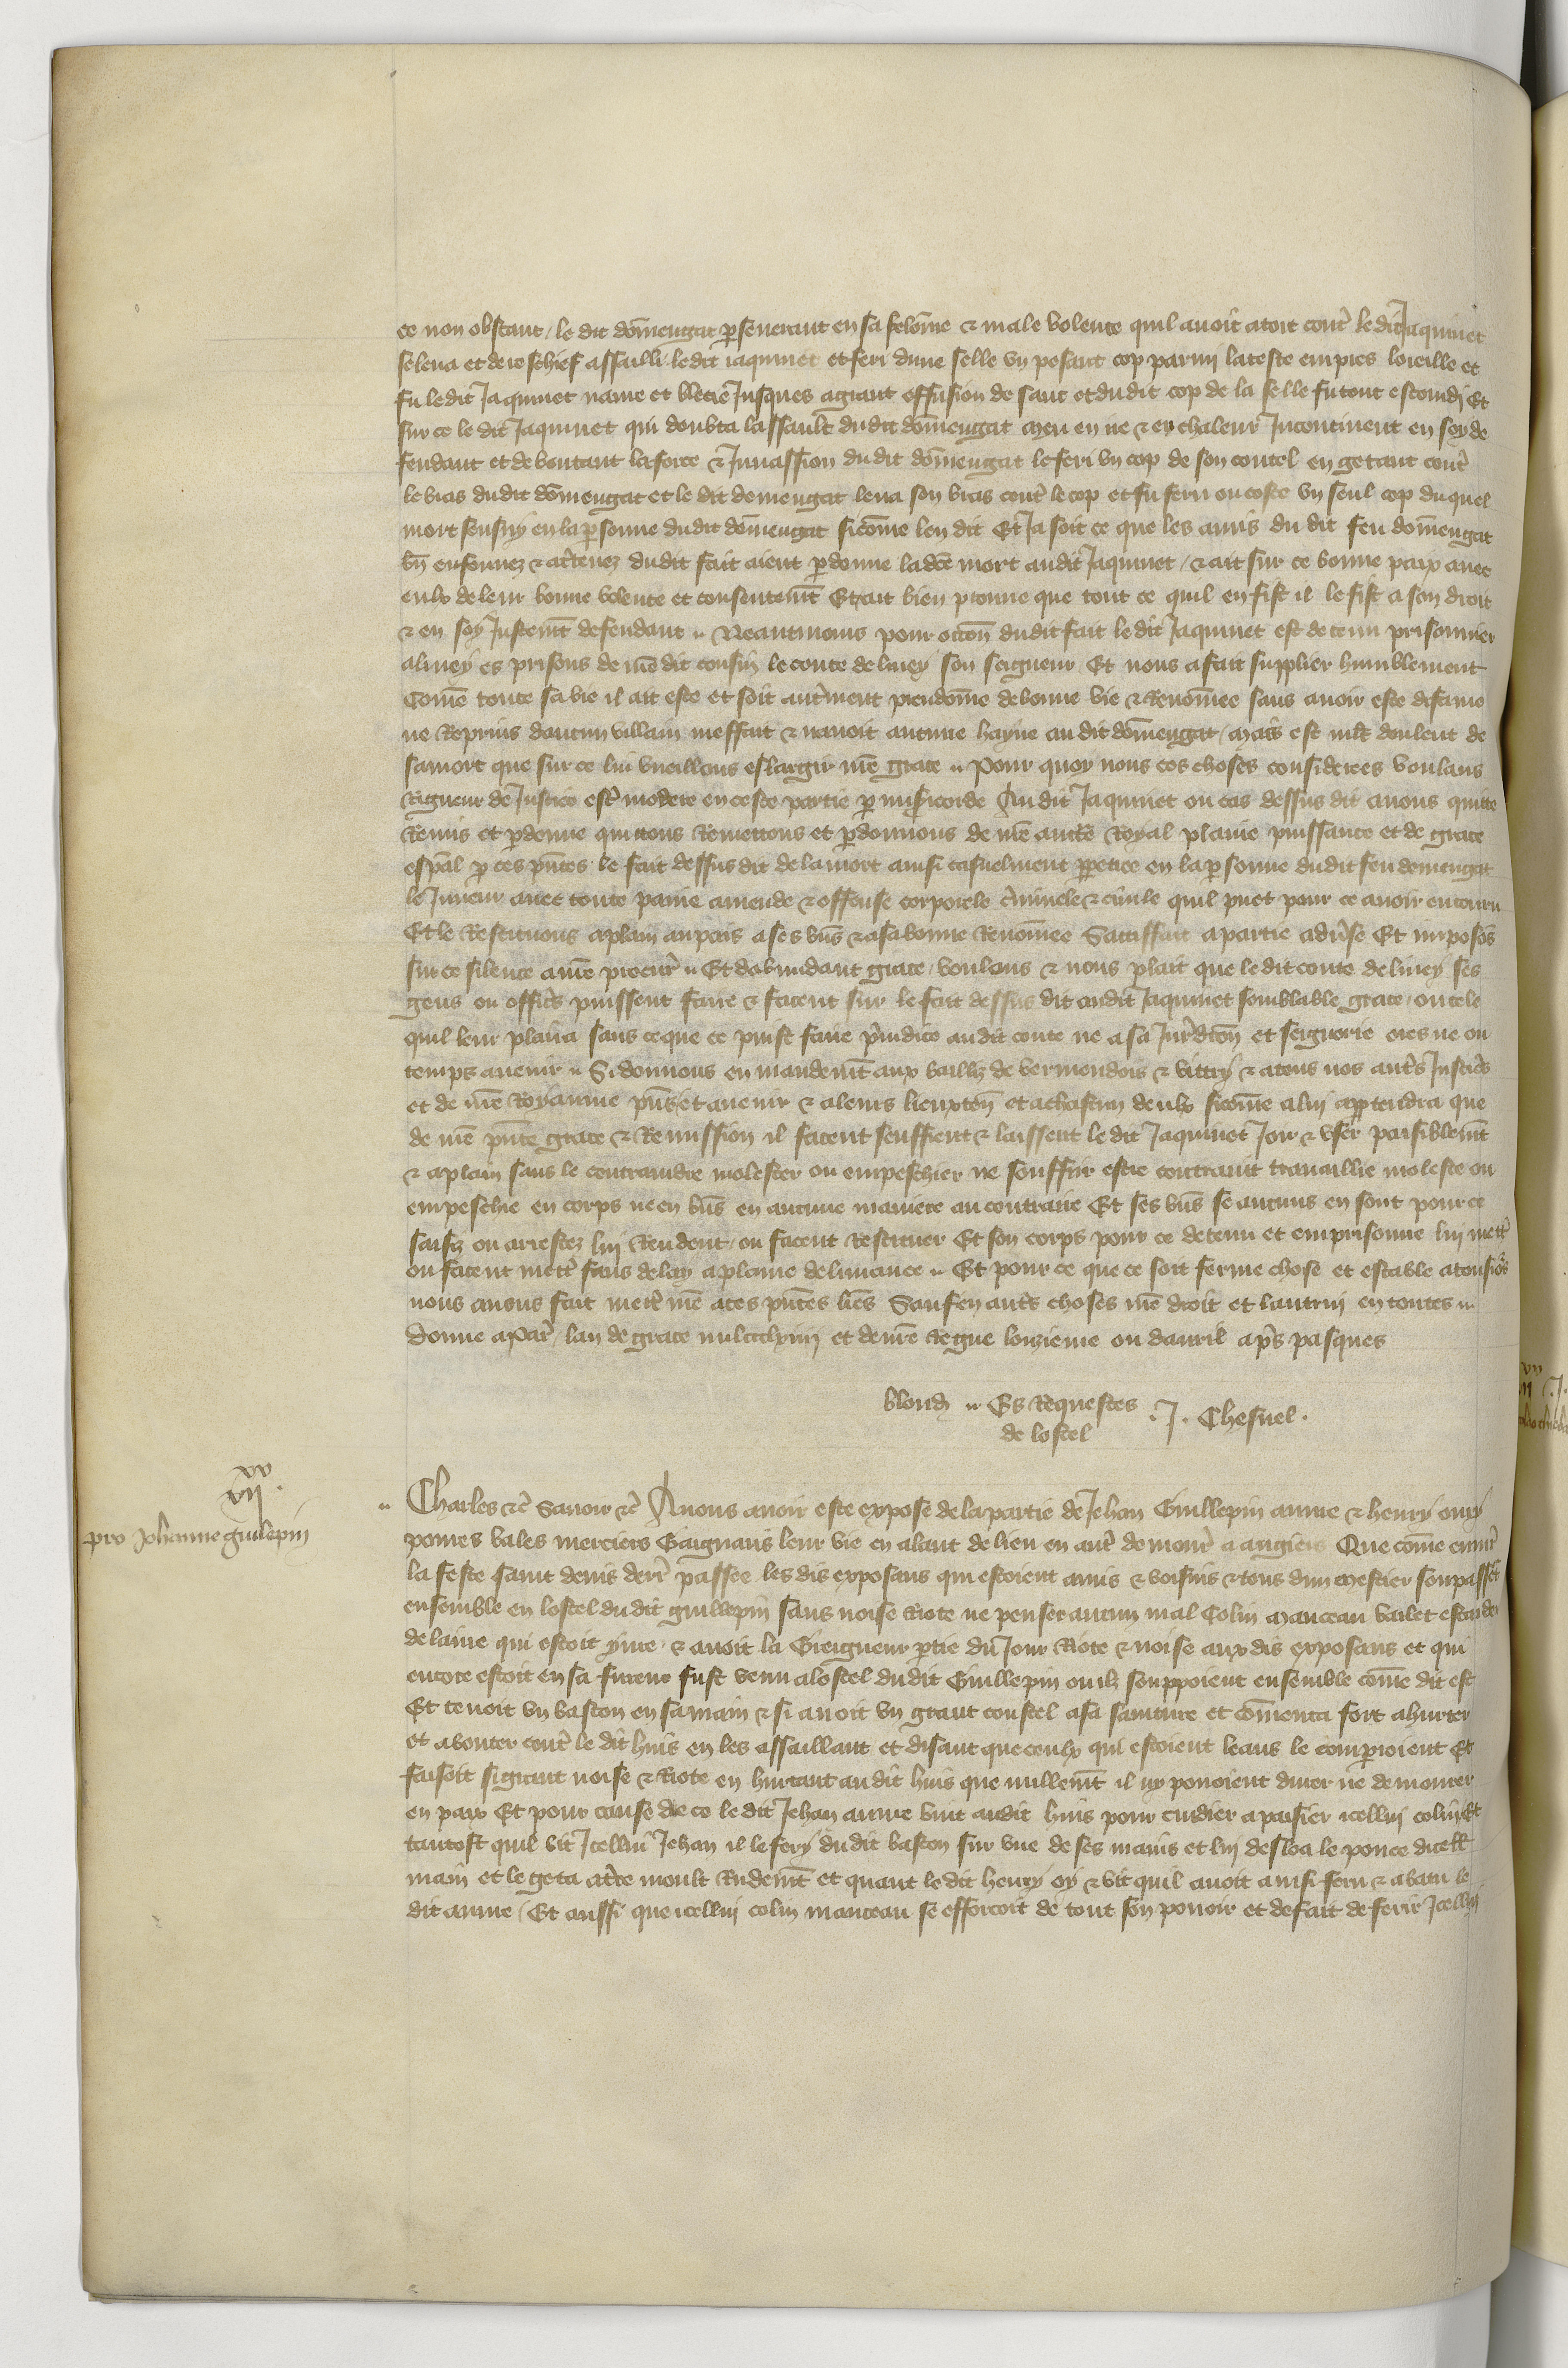 ce non obstant / le dit dom̄engat p̱seuerant en sa felōnie & male volente quil auoit atort contr̄ le dit Jaquinet
se leua et derechief assailli ledit iaquinet et feri dune selle vn pesant cop parmi lateste empres loreille et
fu ledit Jaquinet naure et blecie Jusques agrant effusion de sanc et dudit cop de la selle fu tout estourdi Et
sur ce le dit Jaquinet qui doubta lassault dudit dom̄engat meu en ire & en chaleur Incontinent en soy de
fendant et deboutant laforce & Inuassion du dit dom̄engat le feri vn cop de son coutel en getant contr̄
le bras dudit dom̄engat et le dit domengat leua son bras contr̄ le cop et fu feru ou coste vn seul cop duquel
mort sensuy en la p̱sonne dudit dom̄engat sicōme len dit Et Ja soit ce que les amis du dit feu dom̄engat
bn̄ enformez & acc̄tenez dudit fait aient p̱donne ladc̄e mort audit Jaquinet / & ait sur ce bonne paix auec
eulx de leur bonne volente et consentem̄t Et ait bien prouue que tout ce quil en fist il le fist a son droit
& en soy Justem̄t defendant Neantmoins pour occōn dudit fait le dit Jaquinet est detenu prisonnier
aliney es prisons de nr̄e dit cousin le conte de liney son seigneur Et nous a fait supplier humblement
Com̄e toute sa vie il ait este et soit autr̄ment preudom̄e de bonne vie & Renom̄ee sans auoir este diffame
ne Reprins daucun villain meffait & nauoit aucune hayne au dit dom̄engat / mais est mlt̄ doulent de
samort que sur ce lui vueillons eslargir nr̄e grace Pour quoy nous ces choses considerees voulans
Rigueur de Justice estr̄ moderee en ceste partie p̱ misericorde Audit Jaquinet ou cas dessus dit auons quitte
Remis et p̱donne quittons Remettons et p̱donnons de nr̄e auctē Royal plaine puissance et de grace
esp̄al p̱ ces pn̄tes le fait dessus dit de la mort ainsi casuelment p̱petree en la p̱sonne dudit feu domengat
le Juneur auec toute paine amende & offense corporele cr̄iminele & ciuile quil puet pour ce auoir encouru
Et le Restituons aplain au pais a ses bn̄s & asa bonne Renom̄ee Satiffait apartie aduer̄se Et imposōs
sur ce silence anr̄e procur̄ Et dabundant grace / voulons & nous plait que le dit conte de liney ses
gens ou offic̄rs puissent faire & facent sur le fait dessus dit audit Jaquinet semblable grace / ou tele
quil leur plaira sans ceque ce puist faire p̄iudice audit conte ne a sa Jur̄dicōn et seignorie ores ne ou
temps auenir Si donnons en mandem̄t aux bailliz de vermendois & vittry & atous nos autr̄s Justicīrs
et de nr̄e Royaume pn̄s et auenir & aleurs lieuxten̄ et achascun deulx sicōme alui app̱tendra que
de nr̄e pn̄te grace & Remission il facent seuffrent & laissent le dit Jaquinet Joir & vser paisiblem̄t
& aplain sans le contraindre molester ou empeschier ne souffrir estre contraint trauaillie moleste ou
empeschie en corps ne en bn̄s en aucune maniere au contraire Et ses bn̄s se aucuns en sont pour ce
saisiz ou arrestez lui Rendent / ou facent Restituer Et son corps / pour ce detenu et emprisonne lui mett̄r
ou facent mett̄r sans delay aplaine deliurance Et pour ce que ce soit ferme chose et estable atousiōs
nous auons fait mett̄r nr̄e aces pn̄tes lr̄es Sauf en autr̄s choses nr̄e droit et lautrui en toutes
Donne aPar̄ / lan de grace mil ccclxiiij et denr̄e Regne lonzieme ou dauril apr̄s pasques
blondj Es Requestes de lostel .J. Chesnel.
xv
vij.
pro Johanne guilepin
Charles &c̄ Sauoir &c̄ Anous auoir este expose de la partie de Jehan Guillepin aunie & henry oury
poures vales merciers Gaignans leur vie en alant de lieu en autr̄ demour̄ a angiers Que cōme enuir̄
la feste saint denis derr̄ passee les dis exposans qui estoient amis & voisins & tous dun mestier soupasst̄
ensemble en lostel du dit guillepin sans noise Riote ne penser aucun mal Colin manceau varlet escarder
delaine qui estoit yure & auoit la Greigneur p̱tie du Jour Riote & noise aux dis exposans et qui
encore estoit en sa fureur fust venu alostel dudit Guillepin ou ilz souppoient ensemble cōme dit est
Et tenoit vn baston en samain & si auoit vn grant coustel asa sainture et cōmenca fort ahurter
et abouter contr̄ le dit huis en les assaillant et disant que ceulx qui estoient leans le comparroient Et
faisoit sigrant noise & Riote en hurtant audit huis que nullem̄t il ny pouoient durer ne demourer
en paix Et pour cause de ce le dit Jehan aunie vint audit huis pour cuidier apaisier icellui colin Et
tantost quil vit Icellui Jehan il le fery dudit baston sur vne de ses mains et lui desloa le pouce dicell̄
main et le geta at̄rre moult Rudem̄t et quant ledit henry oy & vit quil auoit ainsi feru & abatu le
dit aunie / Et aussi que icellui colin manceau se efforcoit de tout son pouoir et defait de ferir Icellui